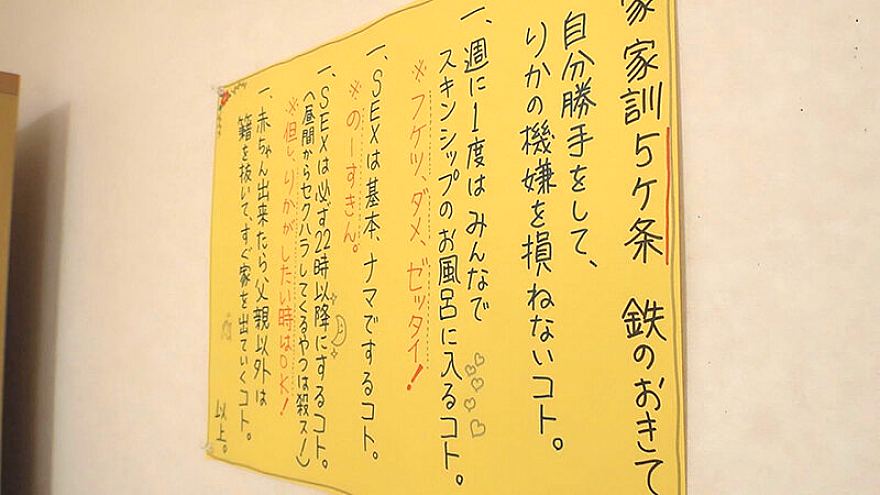 家家訓5ケ条 鉄のおきて
自分勝手をして、
りかの機嫌を損ねないコト。
一、週に1度はみんなで
スキンシップのお風呂に入るコト。
※フケツ、ダメ、ゼッタイ!
一、SEXは基本、ナマでするコト。
※のーすきん。
一、SEXは必ず22時以降にするコト。
(昼間からセクハラしてくるやつは殺ス!)
※但し、りかがしたい時はOK!
一、赤ちゃん出来たら、父親以外は
籍を抜いて、すぐ家を出ていくコト。
以上。